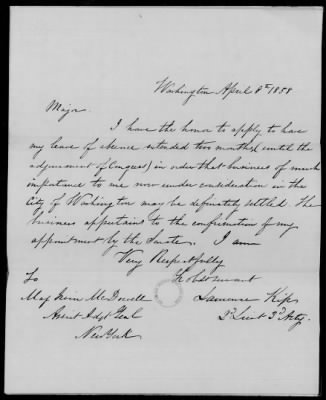 Washington April 8th 1858
Major
I have the honor to apply to have
my leave of absence extended two months (until the
adjournment of Congress) in order that business of much
importance to me now under consideration in the
City of Washington may be definately settled. The
business appertains to the confirmation of my
appointment by the Senate. I am
Very Respectfully
Yr obdt servant
Lawrence Kip
2d Lieut 3d Arty.
To
Maj Irvin McDowell
Assist Adgt Genl
New York